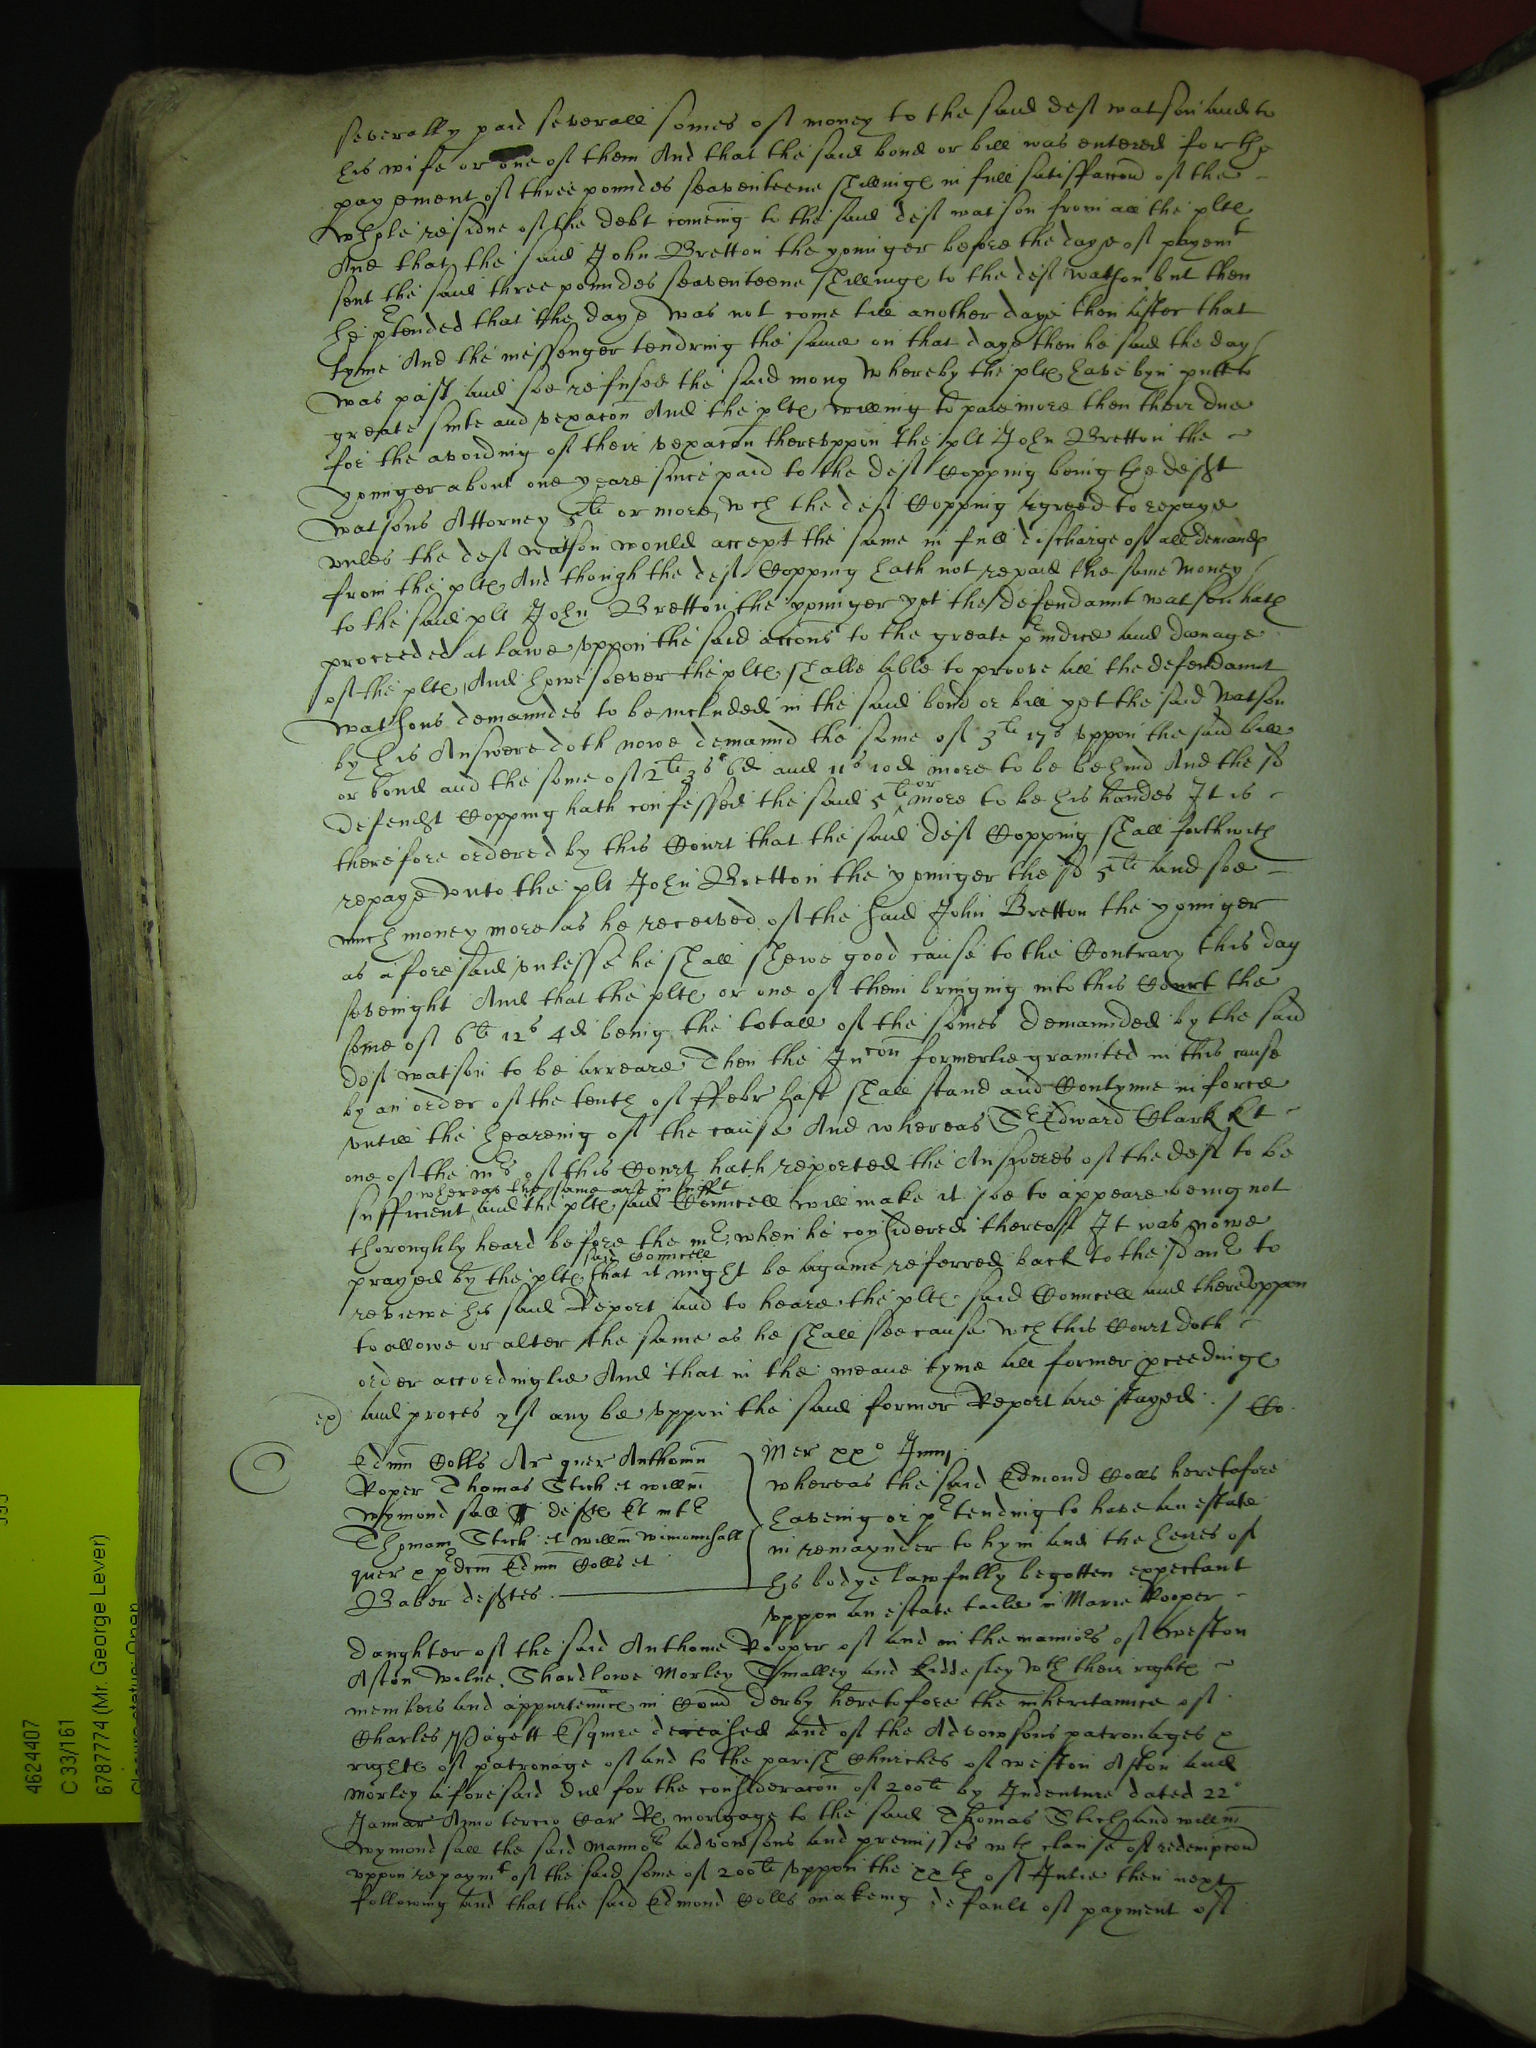 severally paid severall somes of money to the said deft Watson and to
his wife or one of them And that the said bond or bill was entered for the
payement of three poundes seaventeene shillinges in full satisfaccon of the
whole residue of the debt comeing to the said deft Watson from all the plts
And that the said John Bretton the younger before the daye of payemt
sent the said three poundes seaventeene shillinges to the deft Watson but then
he ptended that the daye was not come till another daye then after that
tyme And the messenger tendring the same on that daye then he said the day
was past and soe refused the said mony Whereby the plts have byn putt to
greate suite and vexacon And the plts willing to paie more then their due
for the avoiding of their vexacon thereuppon the plt John Bretton the
younger about one yeare since paid to the deft Copping being the defts
Watsons Attorney 5li or more, wch the deft Copping agreed to repaye
unles the deft Watson would accept the same in full discharge of all demands
from the plts And though the deft Copping hath not repaid the same money
to the said plt John Bretton the younger yet the defendannt Watson hath
proceeded at lawe uppon the said accons to the greate piudice and damage
of the plts, And howesoever the plts shalbe able to proove all the defendannt
Watsons demaundes to be included in the said bond or bill yet the said Watson
by his Answere doth nowe demaund the some of 3li 17s uppon the said bill
or bond and the some of 2li 3s 6d and 11s 10d more to be behind And the sd
defendt Copping hath confessed the said 5li or more to be his handes It is
therefore ordered by this Court that the said deft Copping shall forthwith
repaye unto the plt John Bretton the younger the sd 5li and soe
much money more as he received of the said John Bretton the younger
as aforesaid unlesse he shall shewe good cause to the Contrary this day
sevenight And that the plts or one of them bringing into this Court the
some of 6li 12s 4d being the totall of the somes demaunded by the said
deft Watson to be arreare Then the Incon formerlie graunted in this cause
by an order of the tenth of ffebr last shall stand and Contynue in force
untill the hearing of the cause And whereas Sr Edward Clark kt
one of the mrs of this Court hath reported the Answeres of the deft to be
whereas the same are insufft
sufficient and the plts said Councell will make it soe to appeare being not
thoroughly heard before the mr when he considered thereof It was nowe
said Councell
prayed by the plts that it might be againe referred back to the sd mr to
reviewe his said Report and to heare the plts said Councell and thereuppon
to allowe or alter the same as he shall see cause wch this Court doth
order accordinglie And that in the meane tyme all former pceedinges
ex) and proces yf any be uppon the said former Report are stayed / Co
Edmn Colls Ar quer Anthoniu
Roper Thomas Stich et willm
Wymondsall defts Et intr
Thomam Stich et willm wimonnsall
quer Edmn Colls et
Baber deftes
Mer xxo Junij
whereas the said Edmond Colls heretofore
haveing or ptending to have an estate
in remaynder to hym and the heires of
his bodye lawfully begotten expectant
uppon an estate taile in Marie Rooper
daughter of the said Anthonie Rooper of and in the mannors of Weston
Aston Wilne, Shardlowe Morley Smalley and Kiddesley wth their rightes
members and appurtennces in Com derby heretofore the inheritannce of
Charles Pagett Esquire deceased and of the Advowsons patronages &
rightes of patronage of and to the parish Churches of Weston Aston and
Morley aforesaid did for the consideracon of 200li by Indenture dated 22o
Januar Anno tercio Car Rs mortgage to the said Thomas Stich and willm
Wymondsall the said mannors advowsons and premisses wth clause of redempcon
uppon repaymt of the said some of 200li uppon the xxth of Julie then next
following And that the said Edmond Colls makeing default of payment of
4624407
C 33/161
6787774 (Mr. George Lever)